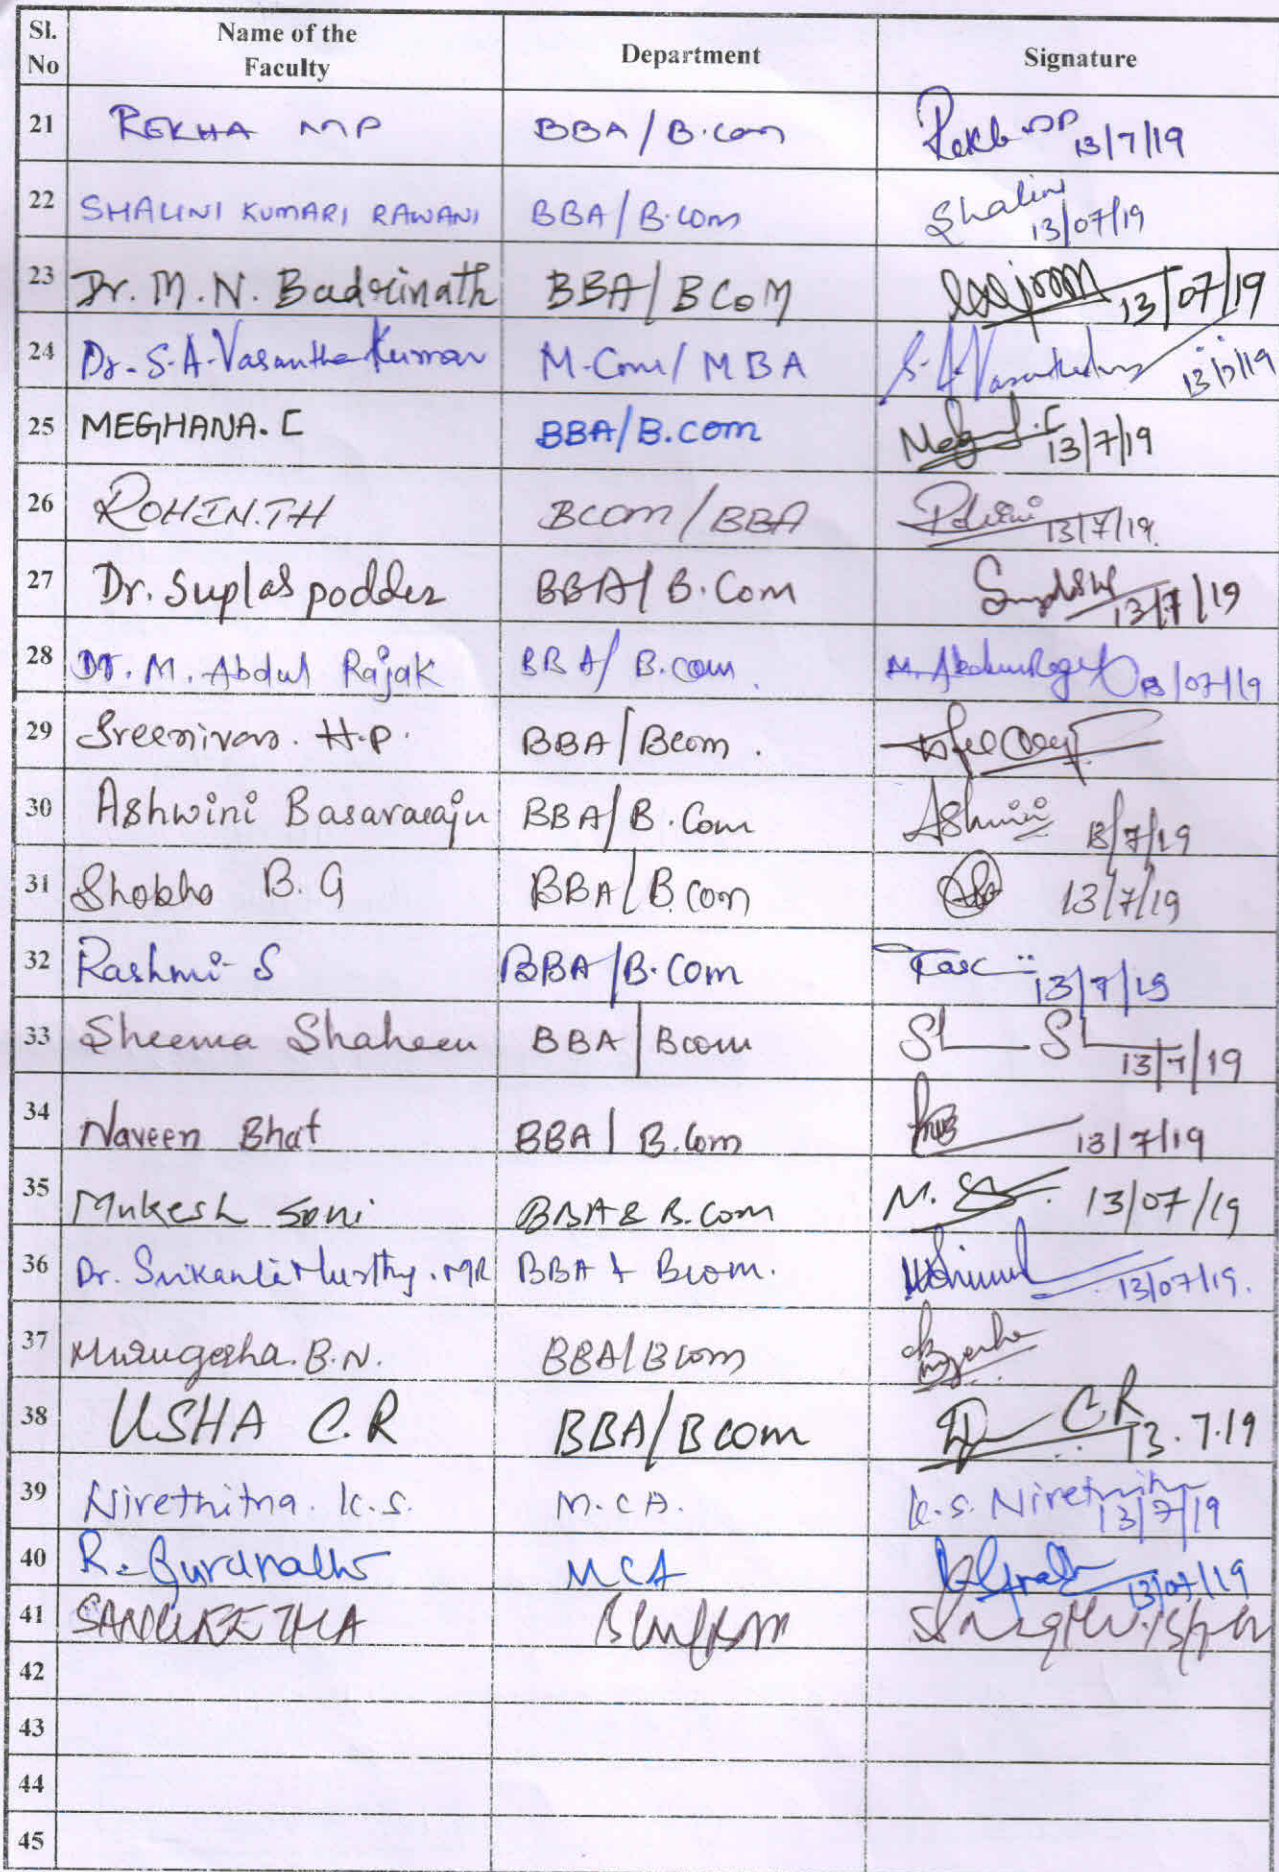 Sl. No Name of the Faculty Department Signature
21 REKHA MP BBA/B.com 13/7/19
22 SHALINI KUMARI RAWANI BBA/B.com Shalini 13/07/19
23 Dr. M. N. Badrinath BBA/BCoM 13/07/19
24 Dr. S.A. Vasantha Kumar M.Com/MBA 13/7/19
25 MEGHANA. C BBA/B.com 13/7/19
26 ROHIN.TH BCom/BBA 13/7/19.
27 Dr. Suplab podder BBA/B.Com 13/7/19
28 Dr. M. Abdul Rajak BBA/B.com. 13/07/19
29 Sreenivas. H.P. BBA/Bcom.
30 Ashwini Basavaraju BBA/B.Com Ashwini 13/7/19
31 Shobha B.G BBA/B.Com 13/7/19
32 Rashmi S BBA/B.Com 13/7/19
33 Sheema Shaheen BBA/Bcom 13/7/19
34 Naveen Bhat BBA/B.Com 13/7/19
35 Mukesh Soni BBA & B.Com M. 13/07/19
36 Dr. Srikanta Murthy. MR BBA & Bcom. 13/07/19.
37 Murugesha. B.N. BBA/Bcom
38 USHA C.R BBA/Bcom C.R 13.7.19
39 Nirethitna. K.S. M.CA. K.S. 13/7/19
40 R. MCA 13/07/19
41
42
43
44
45